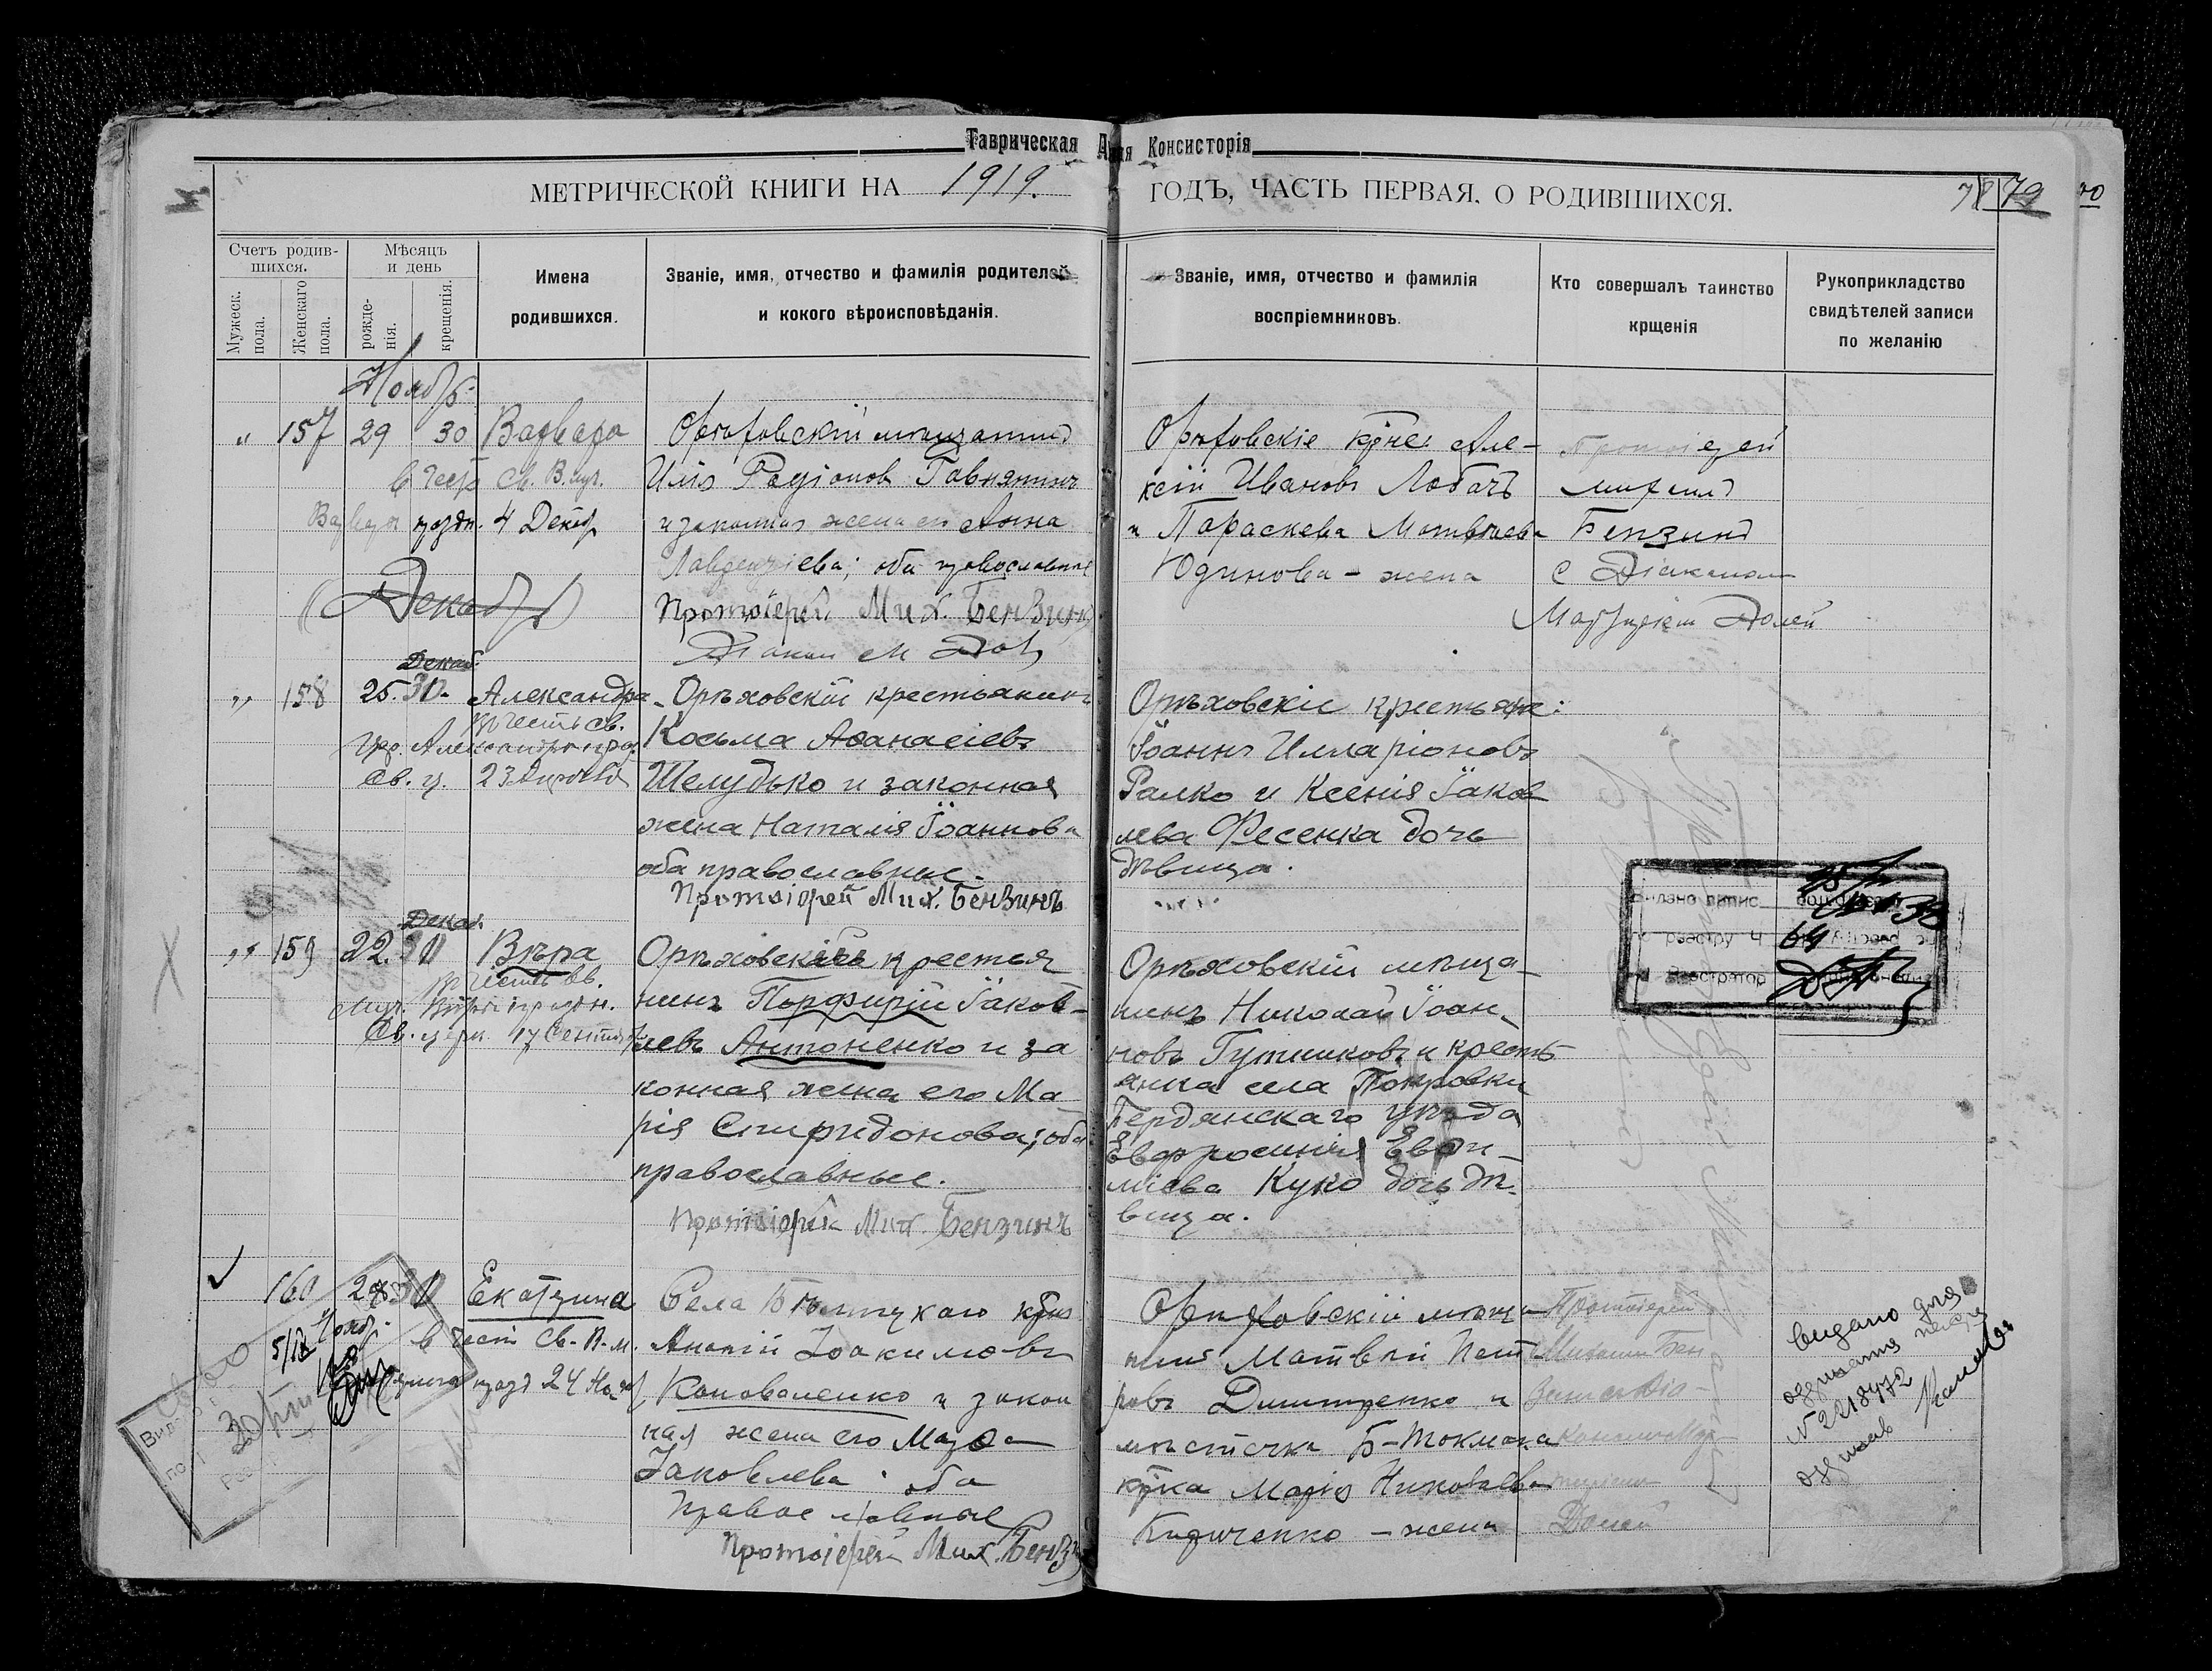 Таврическая Консисторія
МЕТРИЧЕСКОЙ КНИГИ НА 1919. ГОДЪ, ЧАСТЬ ПЕРВАЯ, О РОДИВШИХСЯ.
79
Счетъ родив-
шихся.
Мужеск.
пола.
Женскаго
пола.
Мѣсяцъ
и день
рожде-
нія.
крещенія.
Имена
родившихся.
Званіе, имя, отчество и фамилія родителей
и кокого вѣроисповѣданія.
Званіе, имя, отчество и фамилія
воспріемниковъ.
Кто совершалъ таинство
крщенія
Рукоприкладство
свидѣтелей записи
по желанію
Ноябр.
„ 157 29 30 Варвара
в честь Св. В. муч.
Варвары праздн. 4 Декабр
Орѣховскій мѣщанинъ
Илія Родіонов
и законная жена его Анна
Лаврентіева; оба православные
Протоіерей Мих. Бензинъ
Діакон М
Орѣховскіе кр-не: Але-
ксій Ивановъ Лобачъ
и Параскева Матвѣева
Юдинова - жена
Протоіерей
Михаил
Бензинъ
с Діаконом
Долей
Декабрь
Декаб.
„ 158 25. 30. Александра
въ честь св.
муч. Александры праз.
Св. ц. 23 Апрѣля
Орѣховскій крестьянинъ
Косьма Аѳанасіевъ
Шелудько и законная
жена Наталія Іоаннова
оба православные.
Протоіерей Мих. Бензинъ
Орѣховскіе крестьяне:
Іоаннъ Илларіоновъ
Ралко и Ксенія Іаков
лева Фесенка дочь
дѣвица.
Декаб.
„ 159 22. 30 Вѣра
въ честь св.
муч. Вѣры праздн.
Св. церк. 17 Сентяб
Орѣховскій крестья
нинъ Порфирій Іаков-
левъ Антоненко и за
конная жена его Ма
рія Спиридонова; оба
православные.
Протоіерей Мих. Бензинъ
Орѣховскій мѣща-
нинъ Николай Іоан-
новъ Гутниковъ и кресть
янка села Покровки
Бердянскаго уѣзда
Евфросинія Евѳи-
міева Куко дочь дѣ-
вица.
160 28 30 Екатерина
Нояб.
в честь Св. В. м.
празд 24 Нояб
Села крест
Ананій Іоакимовъ
Коноваленко и закон
ная жена его Марѳа
Іаковлева; оба
Православные
Протоіерей Мих. Бензин
Орѣховскій мѣща-
нинъ Матвѣй Пет
ровъ Дмитренко и
мѣстечка Б-Токмака
кр-ка Марія Николаева
Кириченко - жена
Протоіерей
Михаил Бен
зинъ с Діа-
кономъ
Долей
видано для
одержання
№ 2218472
одержав